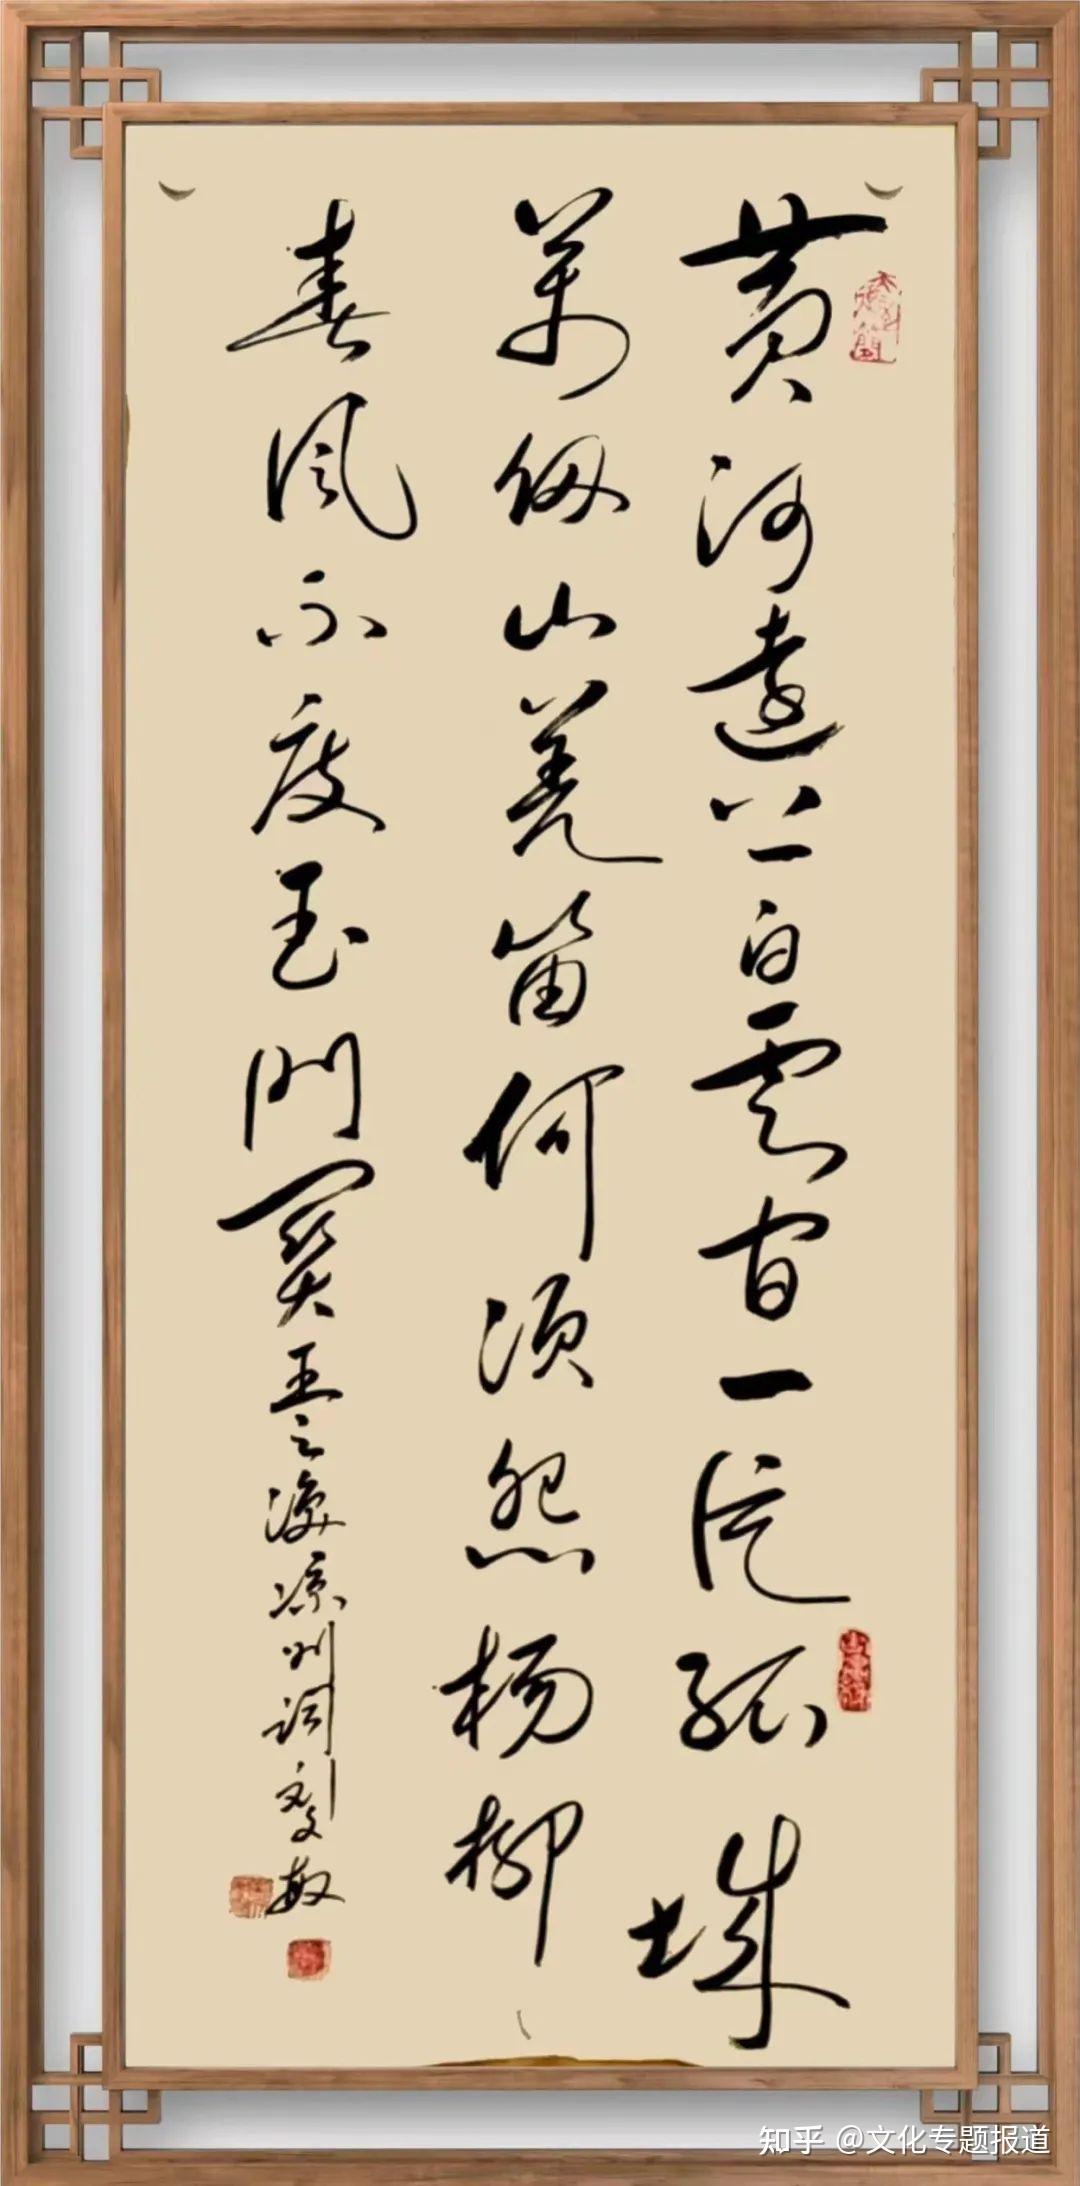 黄河远上白云间一片孤城
万仞山羌笛何须怨杨柳
春风不度玉门关王之涣凉州词刘文敏
知乎 @文化专题报道